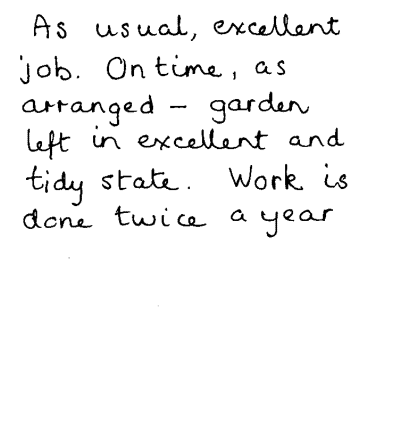 As usual, excellent
job. On time, as
arranged – garden
left in excellent and
tidy state. Work is
done twice a year